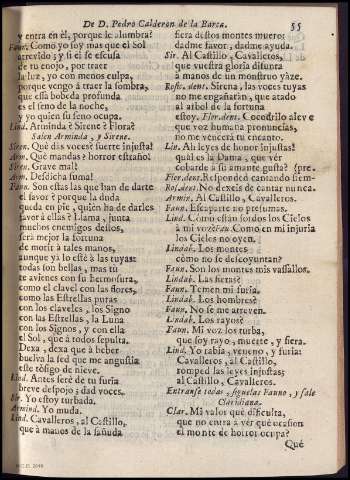 De D. Pedro Calderon de la Barca. 55
y entra en èl, porque le alumbra?
Faun. Como yo soy mas que el Sol
atrevido; y si èl se escusa
de tu enojo, por traer
la luz, yo con menos culpa,
porque vengo à traer la sombra,
que essa bobeda profunda
es el seno de la noche,
y yo quien su seno ocupa.
Lind. Arminda? Sirene? Flora?
Salen Arminda, y Sirene.
Siren. Què das voces? suerte injusta!
Arm. Què mandas? horror estraño!
Siren. Grave mal!
Arm. Desdicha suma!
Faun. Son estas las que han de darte
el favor? porque la duda
queda en pie, quien ha de darles
favor à ellas? Llama, junta
muchos enemigos destos,
serà mejor la fortuna
de morir à tales manos,
aunque yà lo estè à las tuyas:
todas son bellas, mas tù
te avienes con su hermosura,
como el clavel con las flores,
como las Estrellas puras
con los claveles, los Signo
con las Estrellas, la Luna
con los Signos, y con ella
el Sol, que à todos sepulta.
Dexa, dexa que à beber
buelva la sed que me angustia
este tòsigo de nieve.
Lind. Antes serè de tu furia
breve despojo; dad voces.
Sir. Yo estoy turbada.
Armind. Yo muda.
Lind. Cavalleros, al Castillo,
que à manos de la sañuda
fiera destos montes muero:
dadme favor, dadme ayuda.
Sir. Al Castillo, Cavalleros,
que vuestra gloria difunta
à manos de un monstruo yàze.
Rose. dent. Sirena, las voces tuyas
no me engañaràn, que atado
al arbol de la fortuna
estoy. Flor. dent. Cocodrilo aleve
que voz humana pronuncias,
no me vencerà tu encanto.
Lin. Ah leyes de honor injustas!
quàl es la Dama, que vèr
cobarde à su amante gusta?
Flor. dent. Responded cantando siem- (pre.
Ros. dent. No dexeis de cantar nunca.
Armin. Al Castillo, Cavalleros.
Faun. Escaparte no presumas.
Lind. Como estàn sordos los Cielos
à mi voz? Fau. Como en mi injuria
los Cielos no oyen.
Lindab. Los montes
còmo no se descoyuntan?
Faun. Son los montes mis vassallos.
Lindab. Las fieras?
Faun. Temen mi furia.
Lindab. Los hombres?
Faun. No se me atreven.
Lindab. Los rayos?
Faun. Mi voz los turba,
que soy rayo, muerte, y fiera.
Lind. Yo rabia, veneno, y furia:
Cavalleros, al Castillo,
romped las leyes injustas;
al Castillo, Cavalleros.
Entranse todas, siguelas Fauno, y sale
Claridiana.
Clar. Mi valor què dificulta,
que no entra à vèr què ocasion
el monte de horror ocupa?
Què